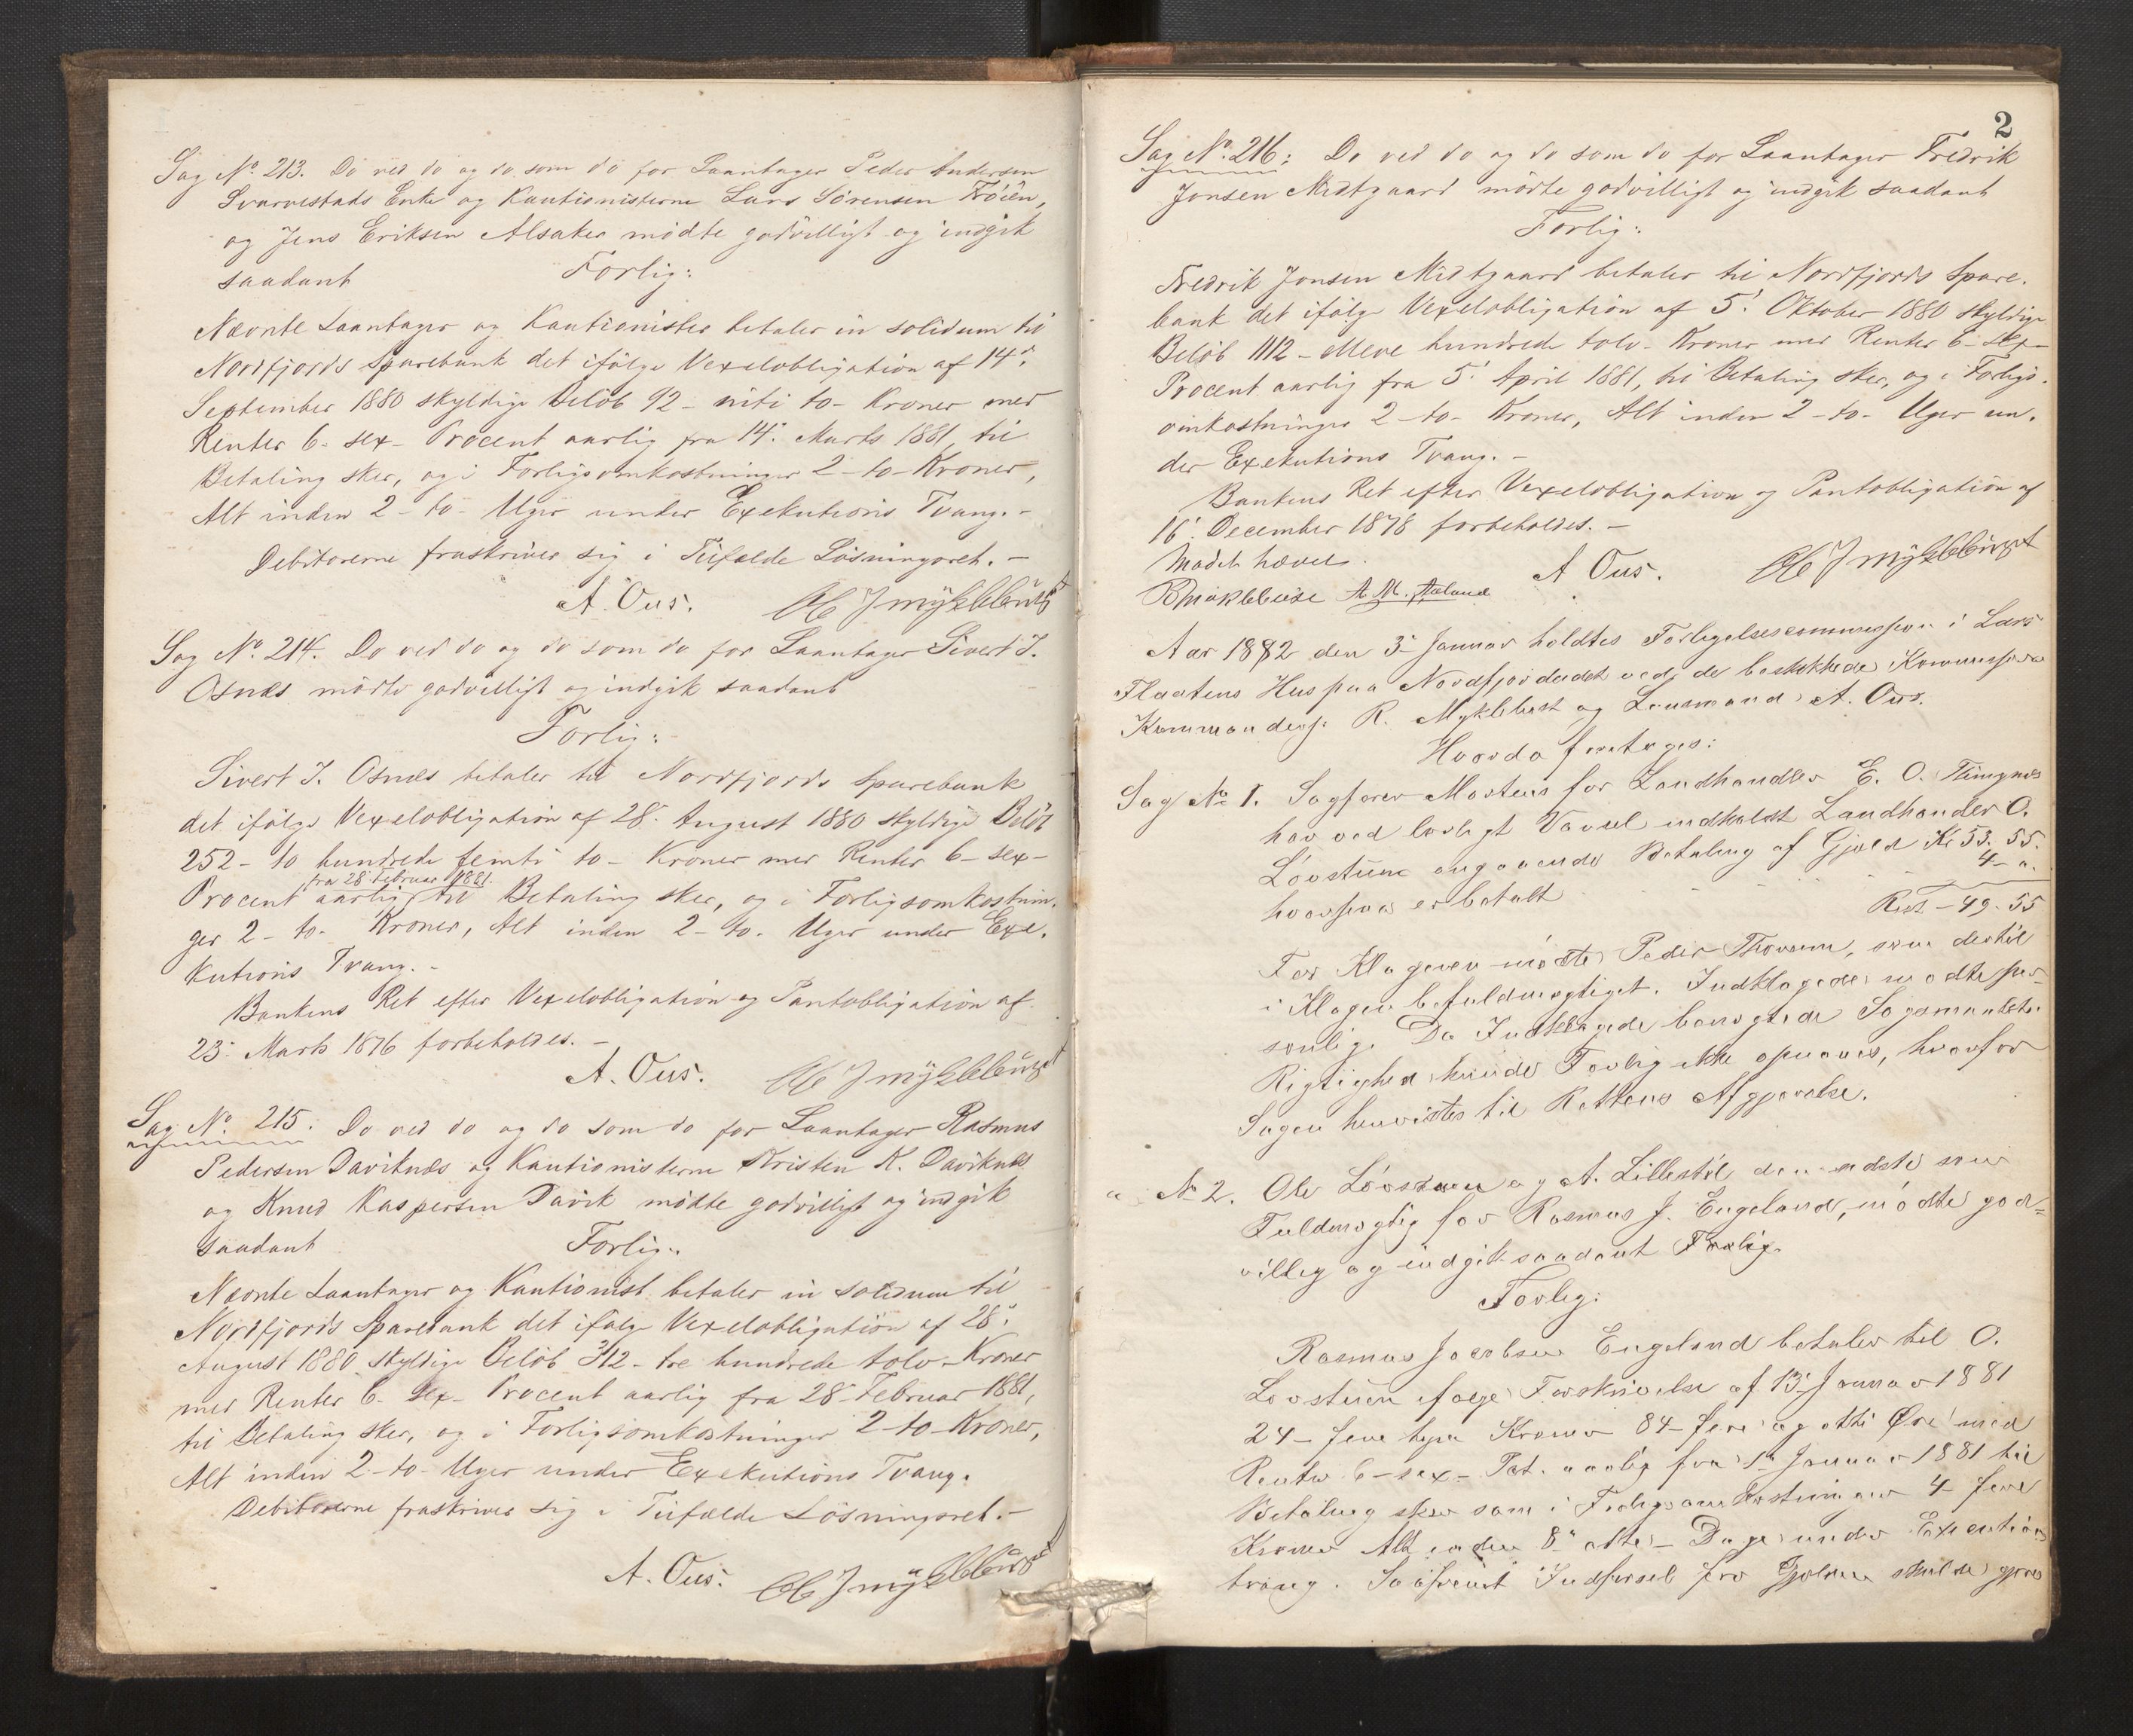 Sag No. 213. Do ved do og do som do for Laantager Peder Andersen
Svarvestads Enke og Kautionisterne Lars Sörensen Fröien,
og Jens Eriksen Alsaker mödte godvilligt og indgik
saadant Forlig:
Nævnte Laantager og Kautionister betaler in solidum til
Nordfjords Sparebank det ifölge Vexelobligation af 14de
September 1880 skyldige Belöb 92 - niti to - Kroner med
Renter 6 - sex - Procent aarlig fra 14. Marts 1881, til
Betaling sker, og i Forligsomkostninger 2 - to - Kroner,
Alt inden 2 - to - Uger under Exekutions Tvang. -
Debitorerne fraskriver sig i Tilfælde Lösningsret. -
A. Ous. J Myklebust
Sag No. 214. Do ved do og do som do for Laantager Sivert J.
Osnæs mödte godvilligt og indgik saadant
Forlig:
Sivert J. Osnæs betaler til Nordfjords Sparebank
det ifölge Vexelobligation af 28. August 1880 skyldige Belöb
252 - to hundrede femti to - Kroner med Renter 6 - sex -
fra 28. Februar 1881.
Procent aarlig til Betaling sker, og i Forligsomkostnin-
ger 2 - to - Kroner, Alt inden 2 - to - Uger under Exe-
kutions Tvang. -
Bankens Ret efter Vexelobligation og Pantobligation af
23. Marts 1876 forbeholdes. -
A. Ous. J Myklebust
Sag No. 215. Do ved do og do som do for Laantager Rasmus
Pedersen Daviknæs og Kautionisterne Kristen K. Daviknæs
og Knud Kaspersen Davik mödte godvilligt og indgik
saadant Forlig:
Nævnte Laantager og Kautionist. betaler in solidum til
Nordfjords Sparebank det ifölge Vexelobligation af 28.
August 1880 skyldige Belöb 312 - tre hundrede tolv - Kroner
med Renter 6 - sex - Procent aarlig fra 28. Februar 1881,
til Betaling sker, og i Forligsomkostninger 2 - to - Kroner,
Alt inden 2 - to - Uger under Exekutions Tvang.
Debitorerne fraskriver sig i Tilfælde Lösningsret. -
A. Ous. J Myklebust
2
Sag No. 216: Do ved do og do som do for Laantager Fredrik
Jonsen Midtgaard mödte godvilligt og indgik saadant
Forlig:
Fredrik Jonsen Midtgaard betaler til Nordfjords Spare-
bank det ifölge Vexelobligation af 5. Oktober 1880 skyldige
Belöb 1112 - elleve hundrede tolv - Kroner med Renter 6 - sex -
Procent aarlig fra 5. April 1881, til Betaling sker, og i Forligs-
omkostninger 2 - to - Kroner, Alt inden 2 - to - Uger un-
der Exekutions Tvang. -
Bankens Ret efter Vexelobligation og Pantobligation af
16. December 1878 forbeholdes. -
Mödet hævet.
A. M. Aaland A Ous. J Myklebust
Aar 1882 den 3. Januar holdtes Forligelsescommission i Lars
Flaatens Hus paa Nordfjordeidet ved de beskikkede Kommissærer
R. Myklebust og Lensmand A. Ous.
Hvorda foretoges:
Sag No 1. Sagfører Martens for Landhandler E. O.
har ved lovligt Varsel indkaldt Landhandler O.
Lövstuen angaaende Betaling af Gjæld Kr 53. 55.
hvorpaa er betalt 4 - "
Rest - 49. 55
For Klageren mödte Peder Thorsen, som dertil
i Klagen befuldmægtiget. Indklagede mödte per-
sonlig. Da Indklagede benegtede Sagsmaalets
Rigtighed kunde Forlig ikke opnaaes, hvorfor
Sagen henvistes til Rettens Afgjørelse.
" No 2. Ole Lövstuen og A. Lillestöl den sidste som
Fuldmægtig for Rasmus J. Engeland, mödte god=
villig og indgik saadant Forlig.
Forlig:
Rasmus Jacobsen Engeland betaler til O.
Lövstuen ifølge Forskrivelse af 13. Januar 1881
24 - fire tyve Kroner 84 - fire og otti Øre med
Renter 6 - sex - Pct. aarlig fra 1ste Januar 1881 til
Betaling sker samt i Forligsomkostninger 4 fire
Kroner Alt inden 8 - otte - Dage under Executions
tvang. Saafremt Indførsel for Gjælden skulde gjøres